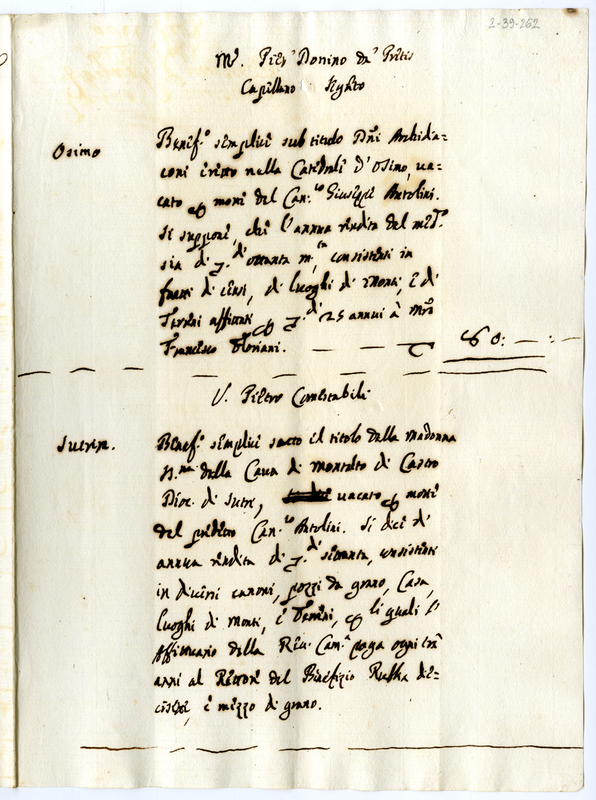 2-39-262
Mr. Pier' Donino de' Pretis
Capellano Segreto
Osimo
Benef.o semplice sub titulo Dni Archidia=
coni eretto nella Catedrale d'Osimo, va=
cato per morte del Can.co Giuseppe Antolini.
Si suppone, che l'annua rendita del med.o
sia di d. ottanta m.ta consistenti in
frutti di censi, di luoghi di Monti, e di
Terreni affittati per d. 25 annui à Mro
Francesco Floriani. — — 60: — : —
V. Pietro Conestabili
Sutrin.
Benef.o semplice sotto il titolo della Madonna
S.ma della Cava di Montalto di Castro
Dioc. di Sutri, vacato per morte
del predetto Can.co Antolini. Si dice d'
annua rendita di d. settanta, consistenti
in diversi canoni, pezzi da grano, Casa,
luoghi di Monti, e Terreni, per li quali l'
Affittuario della Rev. Cam.a paga ogni tre
anni al Rettore del Benefizio Rubbia die=
cisette, e mezzo di grano.